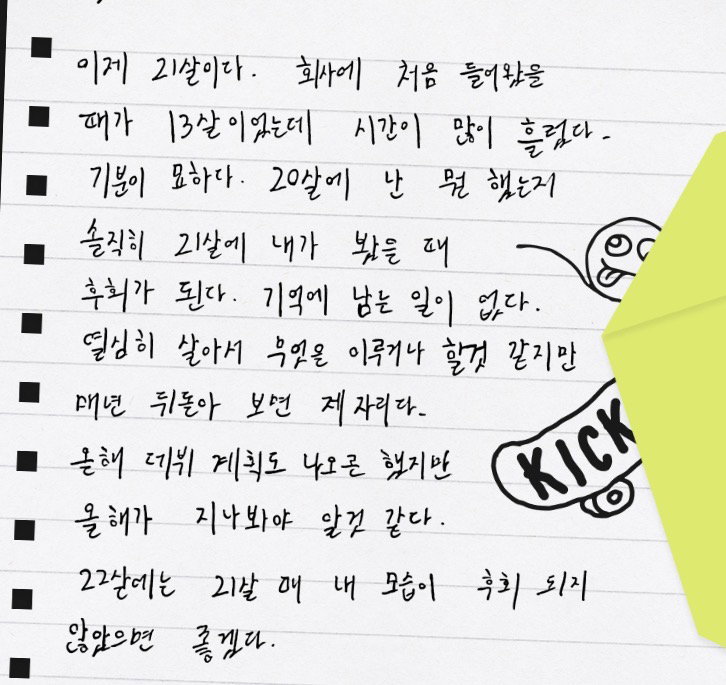 이제 21살이다. 회사에 처음 들어왔을
때가 13살이었는데 시간이 많이 흘렀다.
기분이 묘하다. 20살에 난 뭔 했는지
솔직히 21살에 내가 봤을 때
후회가 된다. 기억에 남는 일이 없다.
열심히 살아서 무엇을 이루거나 할것 같지만
매년 뒤돌아 보면 제자리다.
올해 데뷔 계획도 나오곤 했지만
올해가 지나봐야 알것 같다.
22살에는 21살 때 내 모습이 후회 되지
않았으면 좋겠다.
KICK